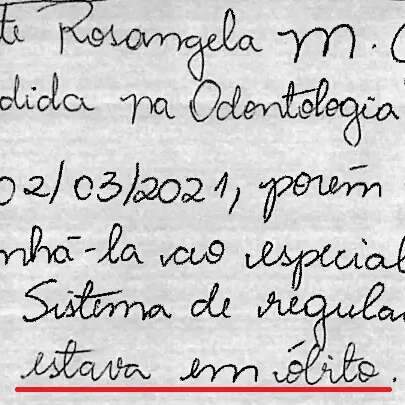 te Rosangela M.
dida na Odontologia
02/03/2021, porém
nhá-la ao especial
Sistema de regula
estava em óbito.